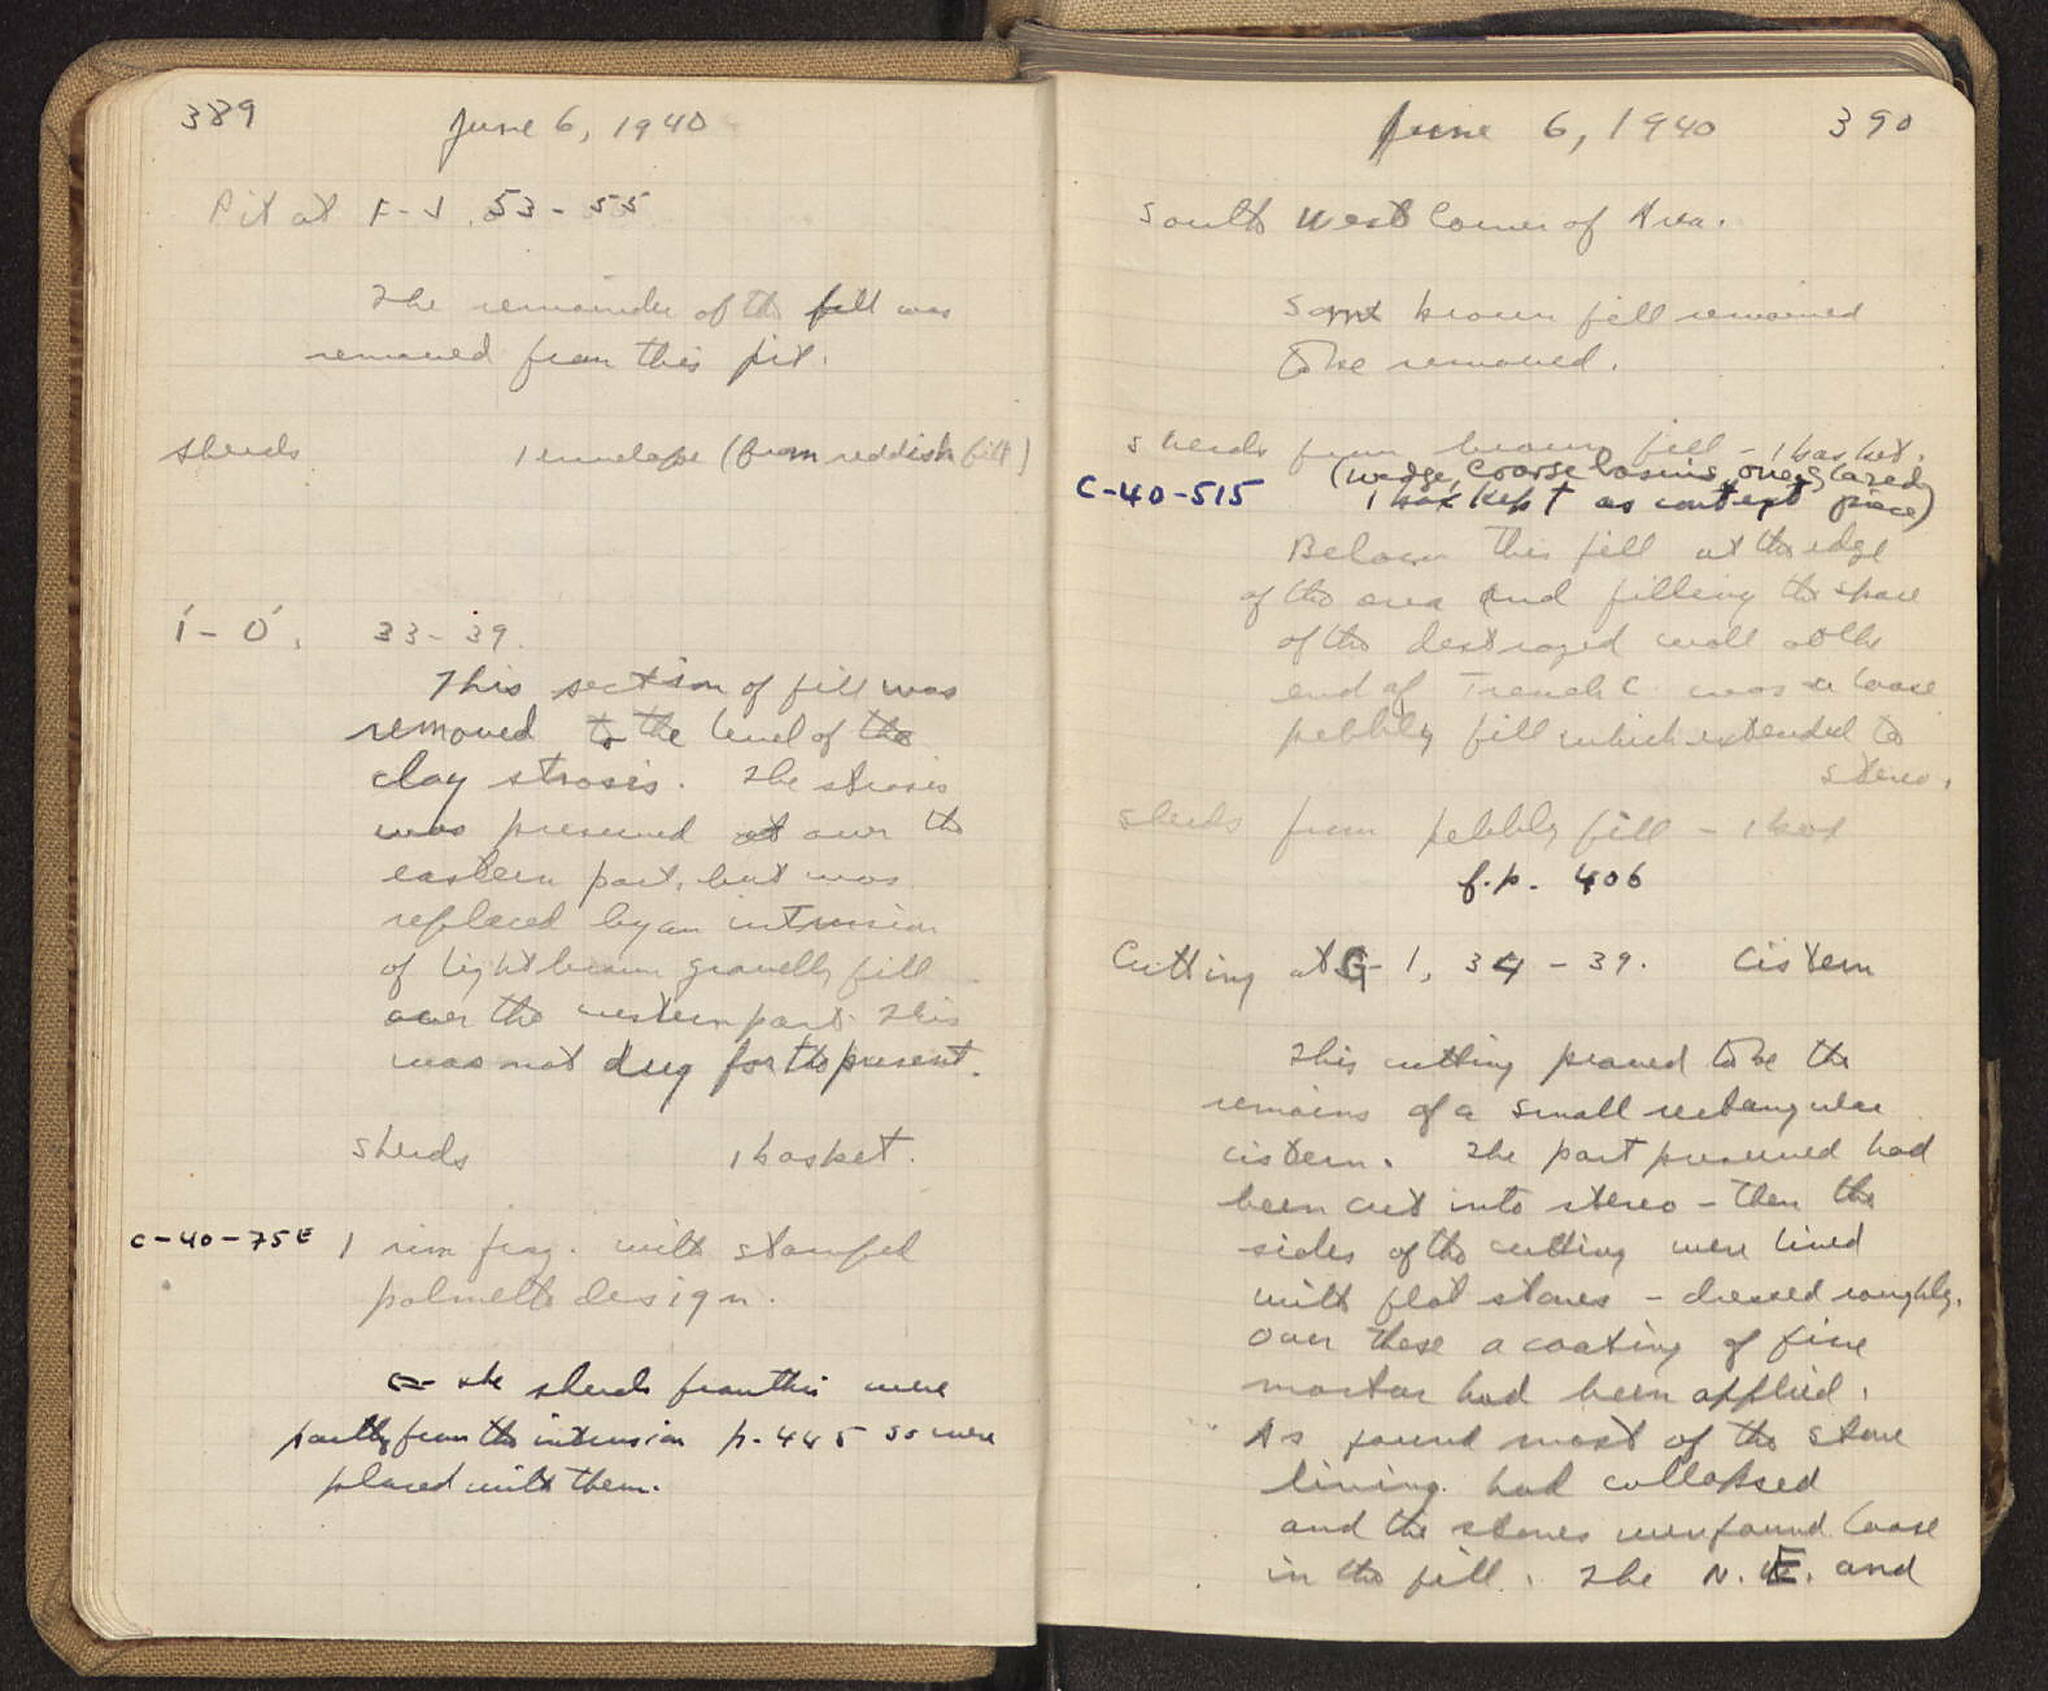 389
June 6, 1940
Pit at F-J. 53-55
The remainder of the fill was
removed from this pit.
sherds 1 envelope (from reddish fill)
Í - Ó, 33-39.
This section of fill was
removed to the level of the
clay strosis. The strosis
was preserved over the
eastern part, but was
replaced by an intrusion
of light brown gravelly fill
over the western part. This
was not dug for the present.
sherds 1 basket.
C-40-75E 1 rim frag. with stamped
palmette design.
the sherds from this were
partly from the intrusion p. 445 so were
placed with them.
June 6, 1940 390
South West Corner of Area.
Some brown fill remained
to be removed.
sherds from brown fill - 1 basket.
(wedge, coarse basins, one glazed)
C-40-515 1 box kept as context piece)
Below this fill at the edge
of the area and filling the space
of the destroyed wall at the
end of Trench C was a loose
pebbly fill which extended to
stereo.
sherds from pebbly fill - 1 box
f.p. 406
Cutting at G-I, 34-39. Cistern
This cutting proved to be the
remains of a small rectangular
cistern. The part preserved had
been cut into stereo - then the
sides of the cutting were lined
with flat stones - dressed roughly.
Over these a coating of fine
mortar had been applied.
As found most of the stone
lining had collapsed
and the stones were found loose
in the fill. The N.E. and